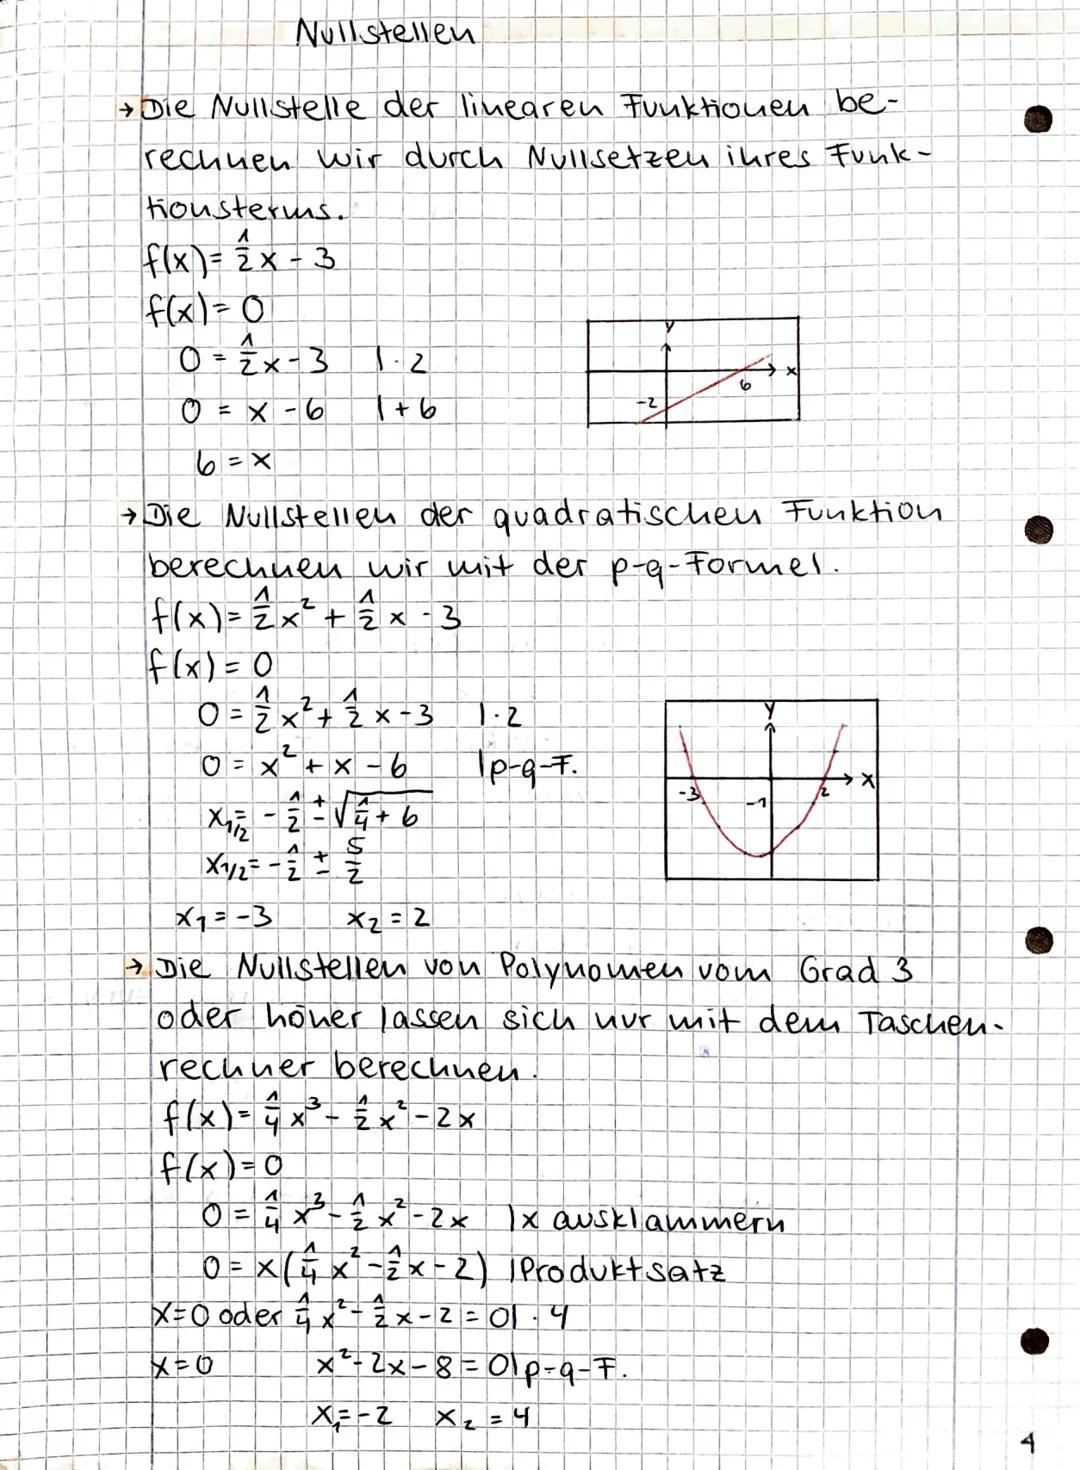 Nullstellen
→ Die Nullstelle der linearen Funktionen be-
rechnen wir durch Nullsetzen ihres Funk-
tionsterms.
f(x)= 1/2 x - 3
f(x)= 0
0 = 1/2 x - 3 | · 2
0 = x - 6 | + 6
6 = x
y
x
6
-2
→ Die Nullstellen der quadratischen Funktion
berechnen wir mit der p-q-Formel.
f(x)= 1/2 x² + 1/2 x - 3
f(x) = 0
0 = 1/2 x² + 1/2 x - 3 | · 2
0 = x² + x - 6 | p-q-F.
x1/2 = - 1/2 ± √(1/4 + 6)
x1/2 = - 1/2 ± 5/2
x₁ = -3 x₂ = 2
y
x
-3
-1
2
→ Die Nullstellen von Polynomen vom Grad 3
oder höher lassen sich nur mit dem Taschen-
rechner berechnen.
f(x)= 1/4 x³ - 1/2 x² - 2x
f(x)= 0
0 = 1/4 x³ - 1/2 x² - 2x | x ausklammern
0 = x(1/4 x² - 1/2 x - 2) | Produktsatz
x=0 oder 1/4 x² - 1/2 x - 2 = 0 | · 4
x=0 x² - 2x - 8 = 0 | p-q-F.
x₁ = -2 x₂ = 4
4